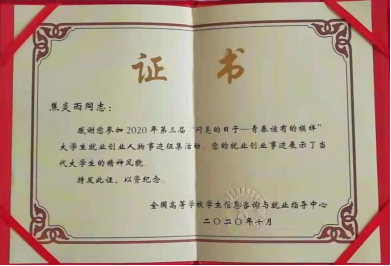 证 书
焦炎雨同志：
感谢您参加2020年第三届“闪亮的日子—青春该有的模样”
大学生就业创业人物事迹征集活动，您的就业创业事迹展示了当
代大学生的精神风貌。
特发此证，以资纪念。
全国高等学校学生信息咨询与就业指导中心
二〇二〇年十月